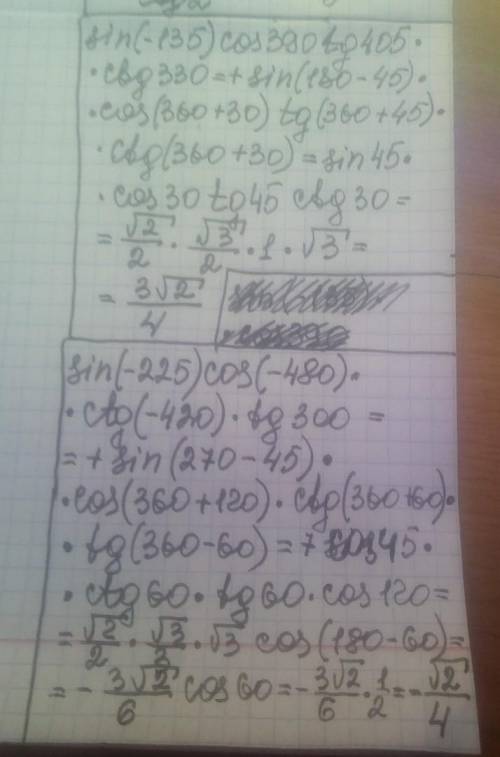 sin(-135)cos390tg405·
·ctg330=+sin(180-45)·
·cos(360+30)tg(360+45)·
·ctg(360+30)=sin45·
·cos30tg45ctg30=
=√2/2·√3/2·1·√3=
=3√2/4
sin(-225)cos(-480)·
·ctg(-420)·tg300=
=+sin(270-45)·
·cos(360+120)·ctg(360+60)·
·tg(360-60)=+cos45·
·ctg60·tg60·cos120=
=√2/2·√3/3·√3 cos(180-60)=
=-3√2/6 cos60=-3√2/6·1/2=-√2/4